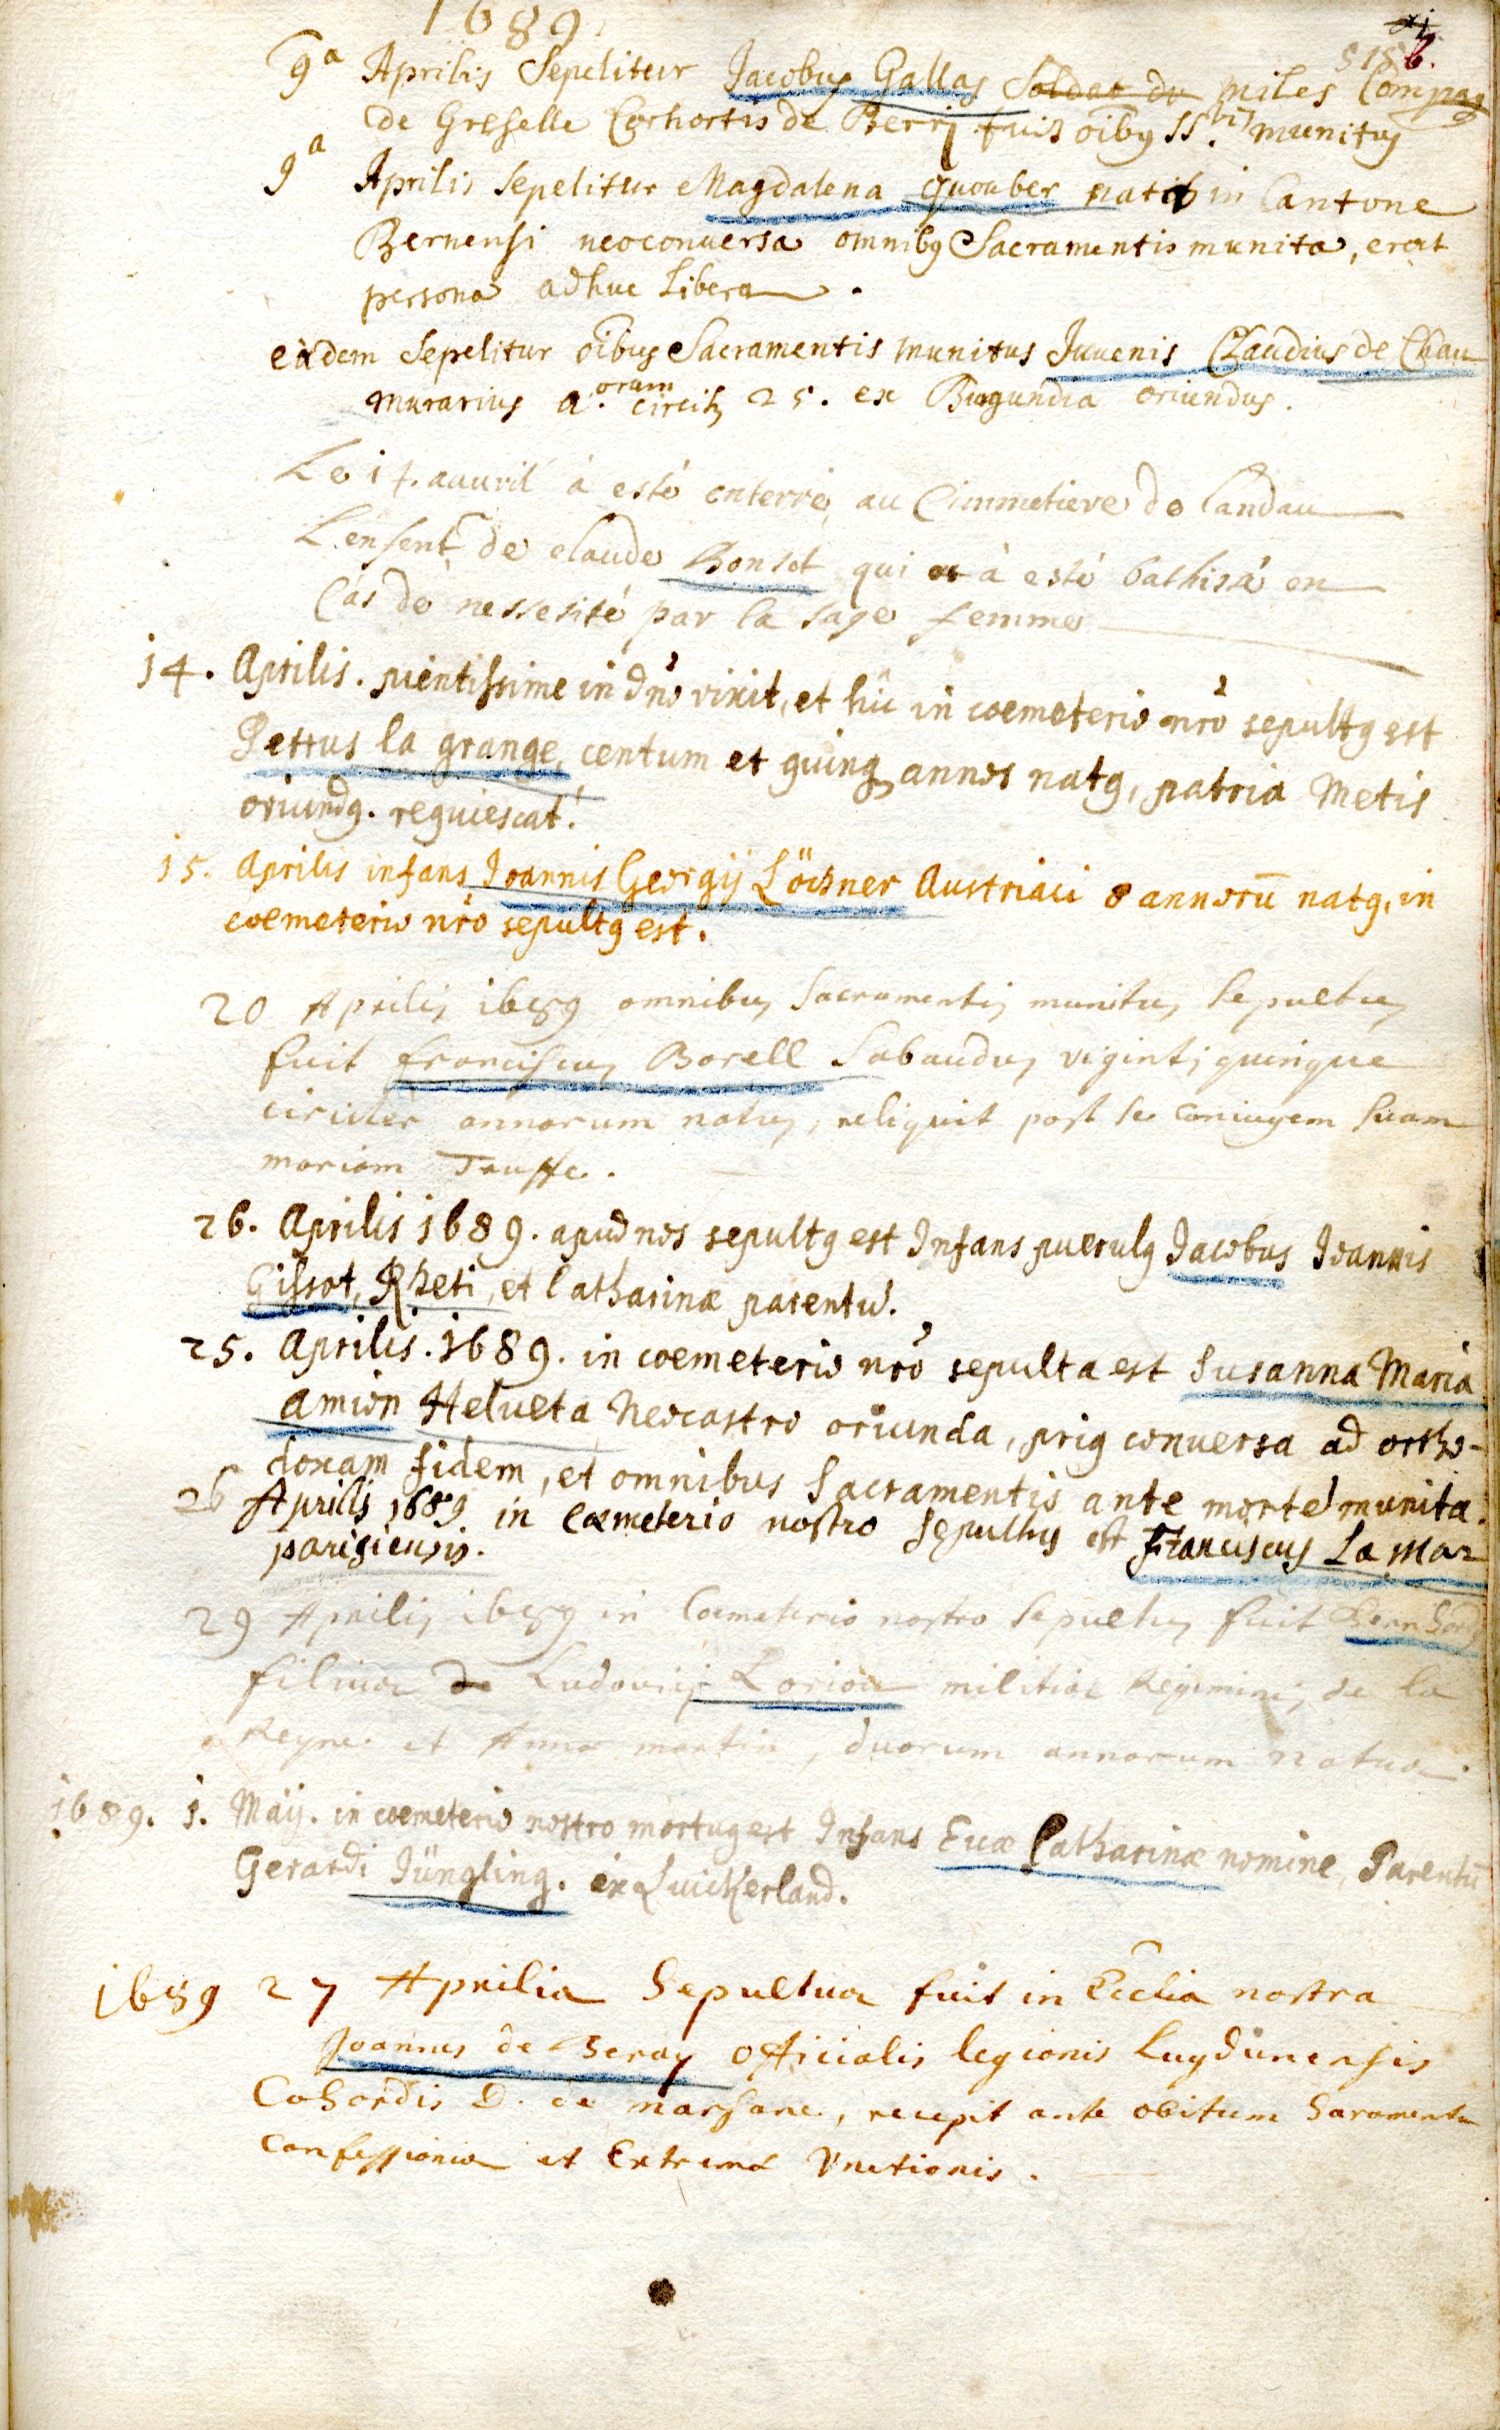 1689
515 b.
9a Aprilis Sepelitur Jacobus Gallas Soldat du miles Compag
de Greselle Corhortis de Berrj fuit oibus SS.tis munitus
9a Aprilis sepelitur Magdalena Quouber in Cantone
Bernensi neoconuersa omnibus Sacramentis munita, erat
persona adhuc Libera.
eàdem Sepelitur oibus Sacramentis munitus Juuenis Claudius de Chau
murarius a.orum circit, 25. ex Burgundia oriundus.
Le 14. auuril à esté enterré au Cimmetiere de Landau
L'enfent de claude Bonset qui à esté bathisà en
Cas de nessesité par la sage femme
14. Aprilis. pientissime in dno vixit, et hic in coemeterio nro sepultus est
Petrus la grange, centum et quinq annos natus, patria Metis
oriundus. requiescat!
15. Aprilis infans Joannis Georgij Löchner Austriaci 8 annorū natus, in
coemeterio nro sepultus est.
20 Aprilis 1689 omnibus Sacramentis munitus Sepultus
fuit franciscus Borell Sabaudus viginti quinque
circiter annorum natus, reliquit post se Coniugem suam
mariam Truffe.
26. Aprilis 1689. apud nos sepultus est Infans puerulus Jacobus Joannis
Gissot, Rheti, et Catharinæ parentū.
25. Aprilis. 1689. in coemeterio nro sepulta est Susanna Maria
Amion Helueta Neocastro oriunda, prius conuersa ad ortho-
doxam fidem, et omnibus Sacramentis ante mortē munita.
26 Aprilis 1689 in Cœmeterio nostro sepultus est Franciscus La Mar
parisiensis.
29 Aprilis 1689 in Coemeterio nostro Sepultus fuit Bernhard
filius de Ludouici Lorion militis Regiminis de la
Reyne et Anna martin, duorum annorum natus.
1689. 1. Maij. in coemeterio nostro mortuus est Infans Euæ Catharinæ nomine, Parentū
Gerardi Jüngling. ex Luickerland.
1689 27 Aprilis Sepultus fuit in Ecclia nostra
Joannes de Beray officialis legionis Lugdunensis
Cohordis D. de marsane, recepit ante obitum Saramenta
Confessionis et Extremæ Vnctionis.